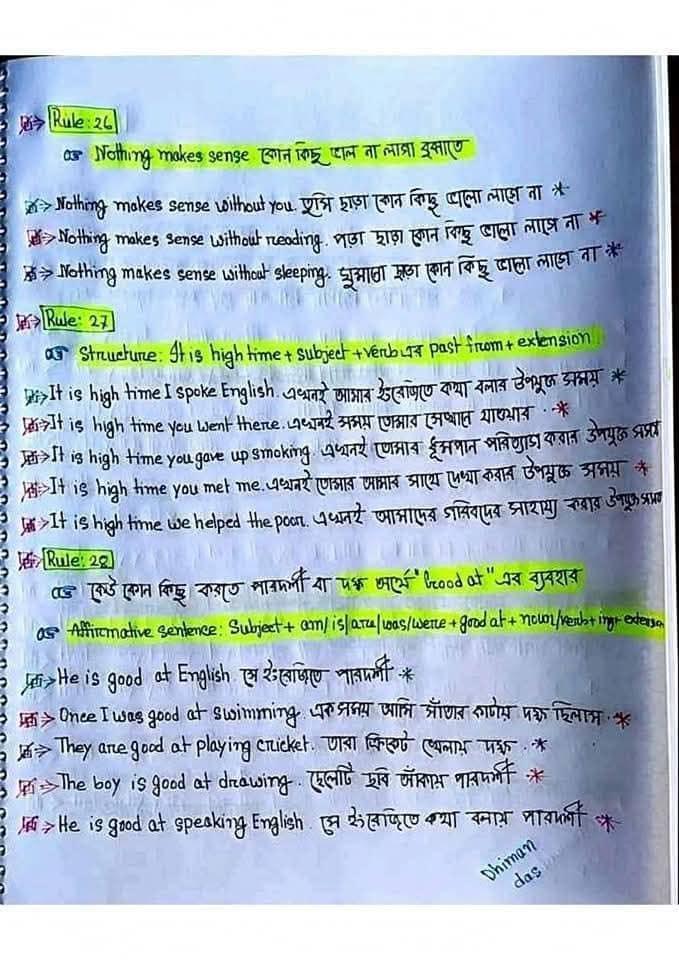 Rule: 26
Nothing makes sense কোন কিছু ভাল না লাগা বুঝাতে
Nothing makes sense without you. তুমি ছাড়া কোন কিছু ভালো লাগে না *
Nothing makes sense without reading. পড়া ছাড়া কোন কিছু ভালো লাগে না *
Nothing makes sense without sleeping. ঘুমানো ছাড়া কোন কিছু ভালো লাগে না *
Rule: 27
Structure: It is high time + subject + verb এর past from + extension
It is high time I spoke English. এখনই আমার ইংরেজিতে কথা বলার উপযুক্ত সময় *
It is high time you went there. এখনই সময় তোমার সেখানে যাওয়ার . *
It is high time you gave up smoking. এখনই তোমার ধূমপান পরিত্যাগ করার উপযুক্ত সময়
It is high time you met me. এখনই তোমার আমার সাথে দেখা করার উপযুক্ত সময় *
It is high time we helped the poor. এখনই আমাদের গরিবদের সাহায্য করার উপযুক্ত সময়
Rule: 28
কেউ কোন কিছু করতে পারদর্শী বা দক্ষ অর্থে "Good at" এর ব্যবহার
Affirmative sentence: Subject + am/is/are/was/were + good at + noun/verb + ing + extension
He is good at English. সে ইংরেজিতে পারদর্শী *
Once I was good at swimming. এক সময় আমি সাঁতার কাটায় দক্ষ ছিলাম . *
They are good at playing cricket. তারা ক্রিকেট খেলায় দক্ষ . *
The boy is good at drawing. ছেলেটি ছবি আঁকায় পারদর্শী *
He is good at speaking English. সে ইংরেজিতে কথা বলায় পারদর্শী *
Dhiman
das